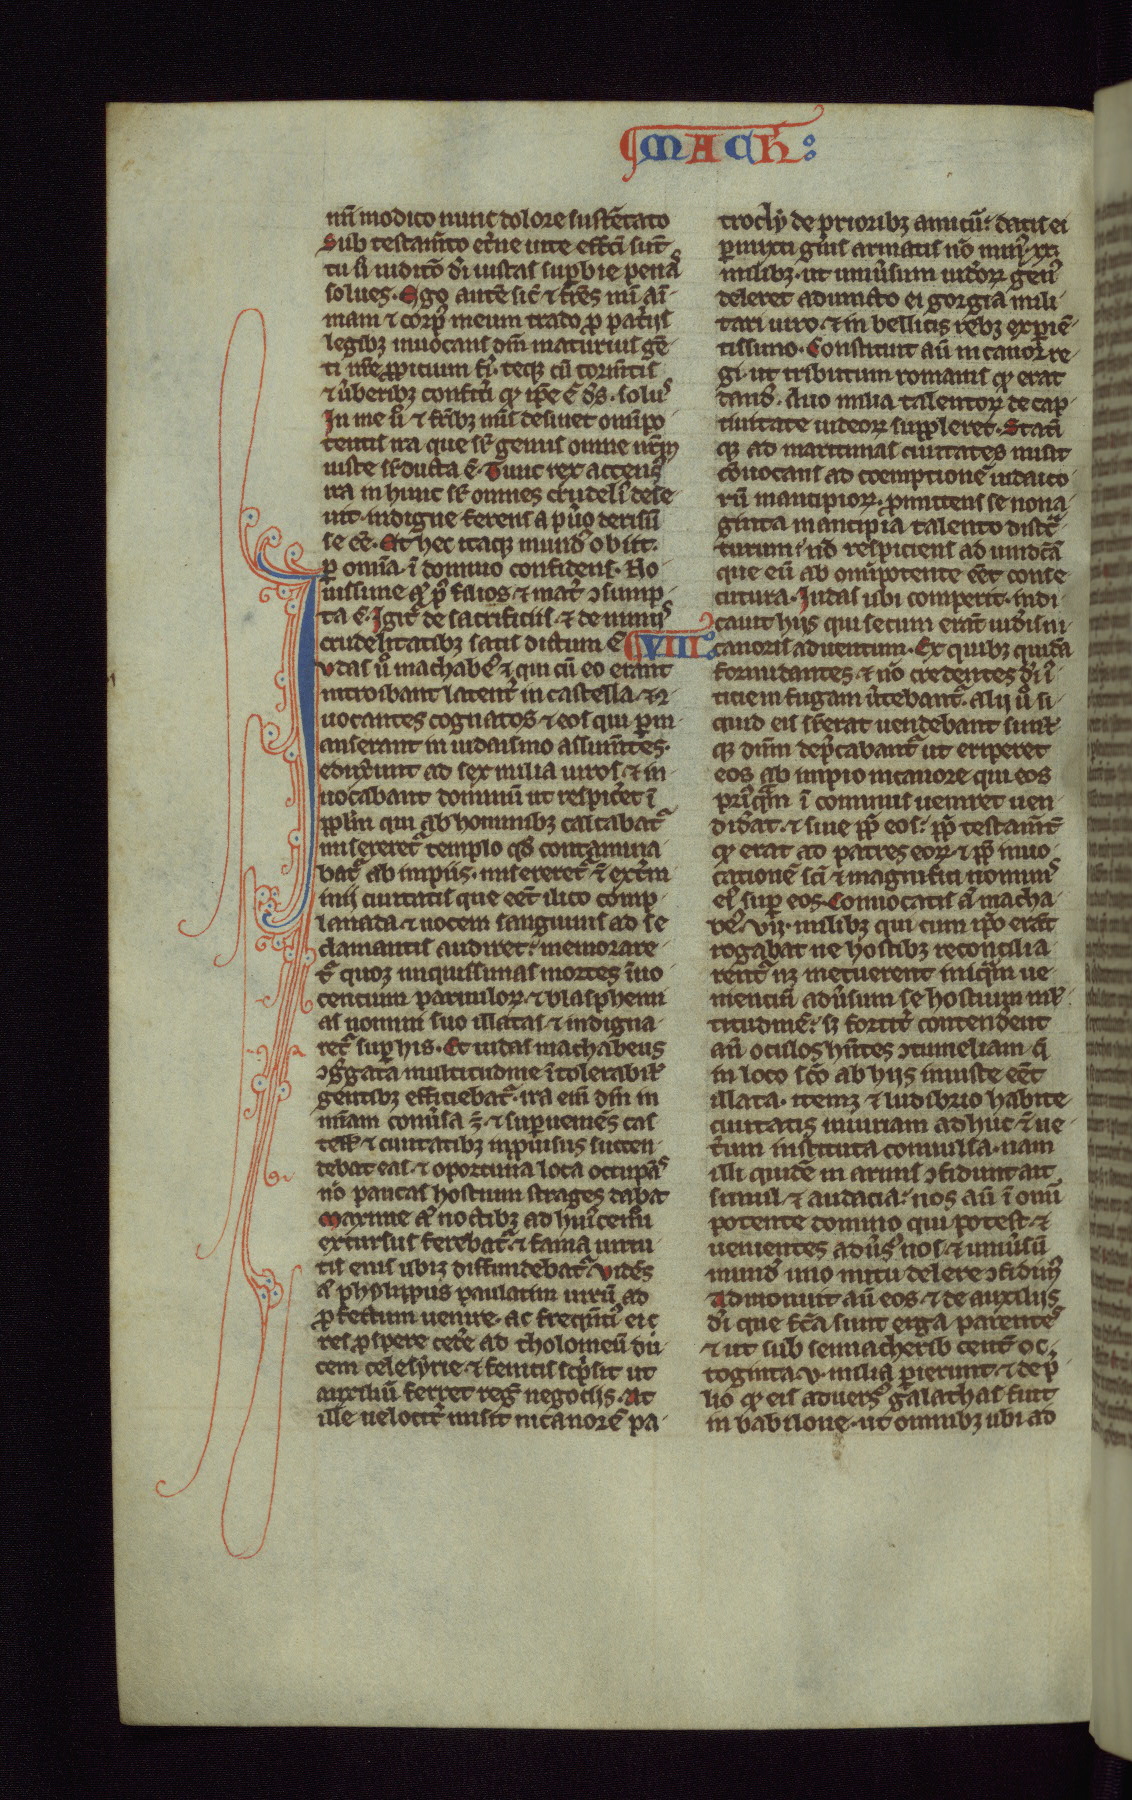 MACH
mei modico nunc dolore sustētato
Sub testam̄to et̄ne uite effc̄i sūt
tu ū iudicō dei iustas supbie penas
solues. Ego autē sic̄ ⁊ fr̄es mī ai
mam ⁊ corp̄ meum trado p̄ pat̄ijs
legibꝫ inuocans dm̄ maturius gē
ti nr̄e ꝓpitium fi teqꝫ cū tormētis
⁊ ūberibꝫ confit̄i qꝫ ip̄e ē dꝫ solus
In me ū ⁊ fr̄ibꝫ meis desinet omīpo
tentis ira que sr̄ genus omne nr̄m
iuste sr̄ducta ē. Tunc rex accensꝰ
ira in hunc sr̄ omnes crudeliꝰ dese
uit indigne ferens a se derisū
se eē. Et hec itaqꝫ mundꝰ obiit
p omīa ī domino confidens. No
uissime at̄ pꝰ filios ⁊ mat̄ ↄsump
ta ē. Igit̄ de sacrificiis ⁊ de nimijs
crudelitatibꝫ satis dictum ē VIII
Iudas ū machabeꝰ ⁊ qui cū eo erant
introibant latent̄ in castella ⁊ ↄ
uocantes cognatos ⁊ eos qui pm
anserant in iudaismo assum̄tes
eduxerunt ad sex milia uiros ⁊ in
uocabant dominū ut respicēt ī
ppl̄m qui ab hominibꝫ calcabat̄
misereret̄ templo qd̄ contamina
bat̄ ab impiis. misereret̄ ⁊ ext̄m
inij ciuitatis que eēt ilico comp
lanada ⁊ uocem sanguinis ad se
clamantis audiret. memorare
t̄ quoqꝫ iniquissimas mortes īno
centium paruulorꝫ ⁊ blasphemi
as nomini suo illatas ⁊ indigna
ret̄ sup his. Et iudas machabeus
ↄḡgata multitudine ītolerabil̄
gentibꝫ efficiebat̄. ira eīm dn̄i in
mīam conūsa ē ⁊ supueniēs cas
tell̄ ⁊ ciuitatibꝫ inprouisus succen
debat eas ⁊ oportuna loca occupās
nō paucas hostium strages dabat
Maxime at̄ noctibꝫ ad huiꝰcemōi
excursus ferebat̄ ⁊ fama uirtu
tis eius ubiqꝫ diffundebat̄. Vidēs
at̄ phylippus paulatim uirū ad
ꝓfectum uenire ac freqn̄tiꝰ ei
res ꝓspere cede ad tholomeū du
cem celesyrie ⁊ fenicis sc̄psit ut
auxiliū ferret regꝭ negociis. At
ille uelocit̄ misit nicanorē pa
trocly de prioribꝫ amicū. datis ei
pmixti gn̄is armatis nō minꝰ xx
milibꝫ ut uniūsum iudeorꝫ genꝰ
deleret adiuncto ei gorgia mili
tari uiro ⁊ in bellicis rebꝫ expiē
tissimo. Constituit aū nicanor re
gi ut tributum romanis qꝫ erat
dandꝰ duo milia talentorꝫ de cap
tiuitate iudeorꝫ suppleret. Statī
qꝫ ad maritimas ciuitates misit
cōuocans ad coemptionē iudaico
rū mancipiorꝫ ꝓmittens se nona
ginta mancipia talento distc̄
turum. nō respiciens ad uindctā
que eū ab omīpotente eēt conse
cutura. Iudas ubi comperit indi
cauit hijs qui secum erāt iudeis ni
canoris aduentum. Ex quibꝫ quidā
formidantes ⁊ nō credentes dei iꝰ
ticie in fugam ūtebant̄. Alij ū si
quid eis sup̄erat uendebant simul̄
qꝫ dm̄ dep̄cabant̄ ut eriperet
eos ab impio nicanore qui eos
priꝰqꝫ ī cominus ueniret uen
did̄at ⁊ sine pp̄ eos. pp̄ testam̄t̄
qꝫ erat ad patres eorꝫ ⁊ pp̄ inuo
cationē sc̄i ⁊ magnifici nominis
eiꝰ sup eos. Conuocatis at̄ macha
beꝰ vij milibꝫ qui cum ip̄o erāt
rogabat ne hostibꝫ reconcilia
rent̄ nꝫ metuerent iniqꝫ ue
nienciū adūsum se hostium ml̄
titudinē. sꝫ fortit̄ contenderent
an̄ oculos hn̄tes ↄtumeliam q̄
in loco sc̄o ab hijs iniuste eēt
illata. itemqꝫ ⁊ ludibrio habite
ciuitatis iniuriam adhuc ⁊ ue
t̄um instituta conuulsa. nam
illi quidē in armis ↄfidunt ait
simul ⁊ audacia. nos aū ī omī
potente domino qui potest ⁊
uenientes adūsꝰ nos ⁊ uniūsū
mundꝰ uno nutu delere ↄfidimꝰ
Admonuit aū eos ⁊ de auxiliis
dei que fc̄a sunt erga parentes
⁊ ut sub sennacherib centū oc
toginta v milia pierunt ⁊ de p̄
lio qꝫ eis aduersꝰ galathas fuit
in babilone ut omnibꝫ ubi ad